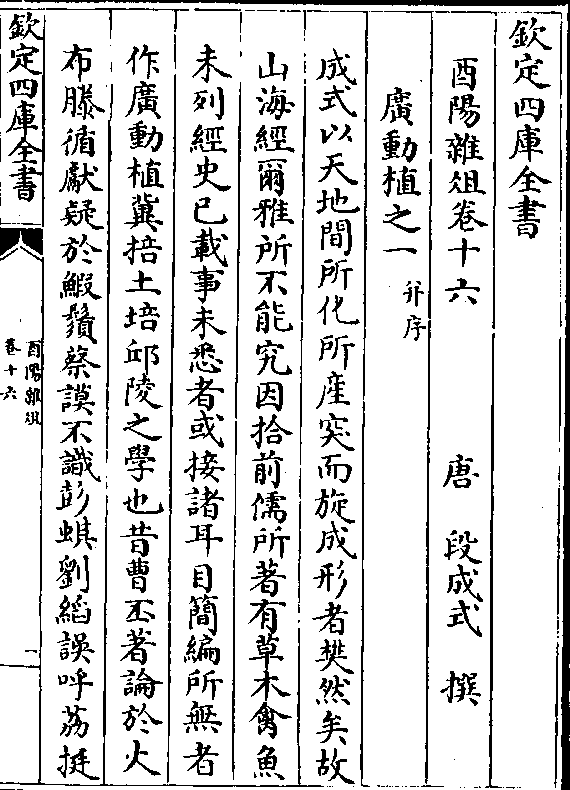 欽定四庫全書
酉陽雜俎卷十六
唐 段成式 撰
廣動植之一 并序
成式以天地間所化所產突而旋成形者樊然矣故
山海經爾雅所不能究因拾前儒所著有草木禽魚
未列經史已載事未悉者或接諸耳目簡編所無者
作廣動植冀掊土培邱陵之學也昔曹丕著論於火
布滕循獻疑於鰕鬚蔡謨不識彭蜞劉縚誤呼荔挺
欽定四庫全書
酉陽雜俎
卷十六
一